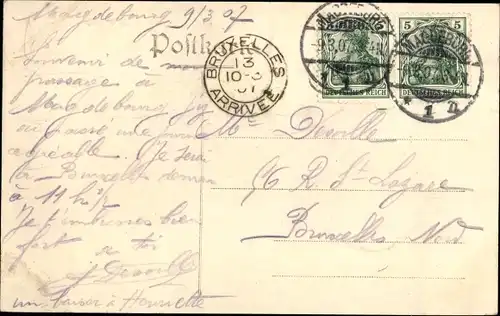 Magdebourg 9/3 07
Postkarte
Souvenir de mon
passage à
Magdebourg j'y
ai passé une
agréable. Je serai
à Bruxelles demain
à 11 h 1/2
Je t'embrasse bien
fort
à toi
Deville
un baiser à Henriette
BRUXELLES
13
10-3
07
ARRIVÉE
MAGDEBURG
9.3.07
1
DEUTSCHES REICH
5 5
MAGDEBURG
1
DEUTSCHES REICH
Me Deville
56 R St Lazare
Bruxelles Nord